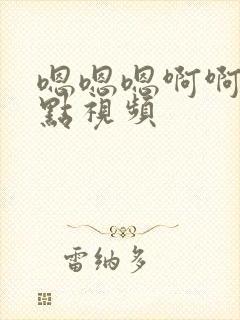 嗯嗯嗯啊啊
點視頻
雷納多